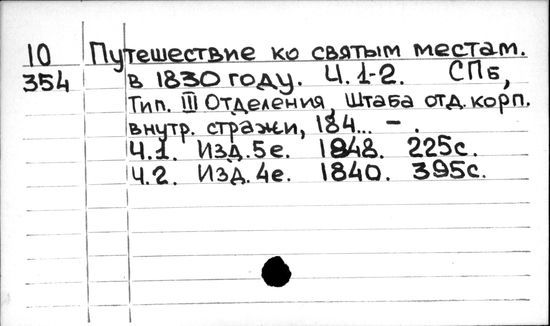 10 Путешествие ко святым местам.
354 в 1830 году. Ч.1-2. СПб,
Тип. III Отделения, Штаба отд. корп.
внутр. стражи, 184... - .
Ч.1. Изд. 5е. 1848. 225с.
Ч.2. Изд. 4е. 1840. 395с.